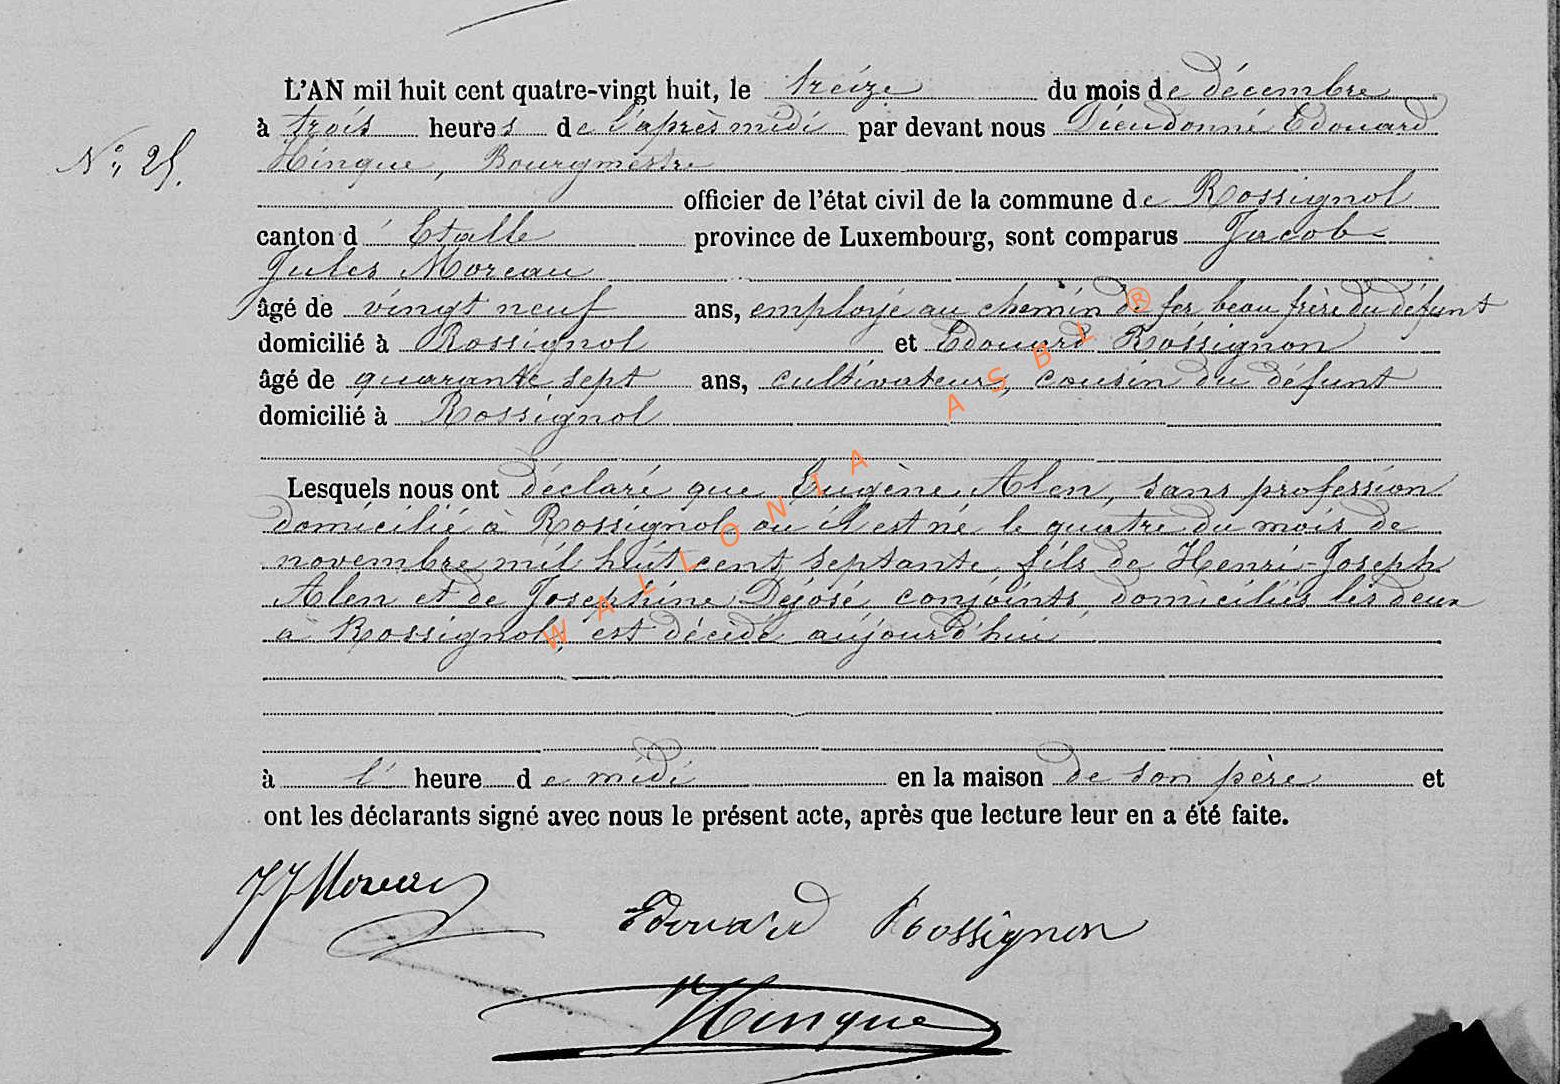 L'AN mil huit cent quatre-vingt huit, le treize du mois de décembre
à trois heures de l'après midi par devant nous Dieudonné Edouard
N° 25.
Hinque, Bourgmestre
officier de l'état civil de la commune de Rossignol
canton d'Etalle province de Luxembourg, sont comparus Jacob
Jules Moreau
âgé de vingt neuf ans, employé au chemin de fer, beau frère du défunt
domicilié à Rossignol et Edouard Rossignon
âgé de quarante sept ans, cultivateur, cousin du défunt
domicilié à Rossignol
Lesquels nous ont déclaré que Eugène Alen, sans profession
domicilié à Rossignol où il est né le quatre du mois de
novembre mil huit cent septante, fils de Henri-Joseph
Alen et de Josephine Déjosé, conjoints, domiciliés les deux
à Rossignol, est décédé aujourd'hui
à l' heure de midi en la maison de son père et
ont les déclarants signé avec nous le présent acte, après que lecture leur en a été faite.
JJ Moreau
Edouard Rossignon
Hinque
WALLONIA ASBL ®